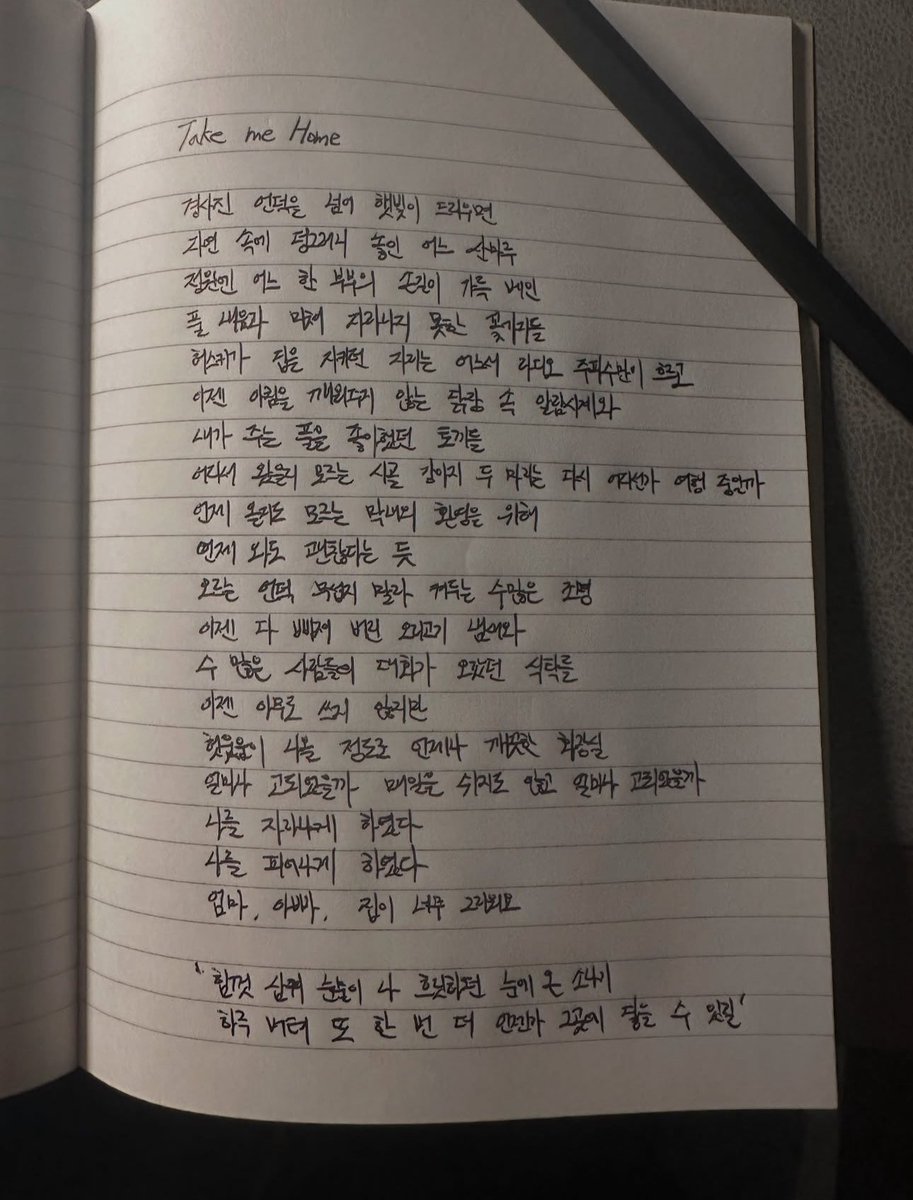 Take me Home
경사진 언덕을 넘어 햇빛이 드리우면
자연 속에 덩그러니 놓인 어느 산마루
정원엔 어느 한 부부의 손길이 가득 베인
풀 내음과 미처 자라나지 못한 꽃가지들
허스키가 집을 지키던 자리는 어느새 라디오 주파수만이 흐르고
이젠 아침을 깨워주지 않는 닭장 속 알람시계와
내가 주는 풀을 좋아했던 토끼들
어디서 왔을지 모르는 시골 강아지 두 마리는 다시 어디선가 여행 중일까
언제 올지도 모르는 막내의 환영을 위해
언제 와도 괜찮다는 듯
오르는 언덕 무섭지 말라 켜두는 수많은 조명
이젠 다 빠져 버린 오리고기 냄새와
수 많은 사람들의 대화가 오갔던 식탁들
이젠 아무도 쓰지 않지만
헛웃음이 나올 정도로 언제나 깨끗한 화장실
얼마나 고되었을까 매일을 쉬지도 않고 얼마나 고되었을까
나를 자라나게 하였다
나를 피어나게 하였다
엄마, 아빠, 집이 너무 그리워요
'힘껏 삼켜 눈물이 나 흐릿하던 눈에 온 소나기
하루 버텨 또 한 번 더 언젠가 그곳에 닿을 수 있길'